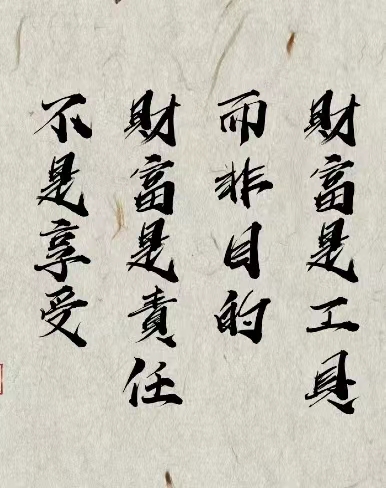 財富是工具
而非目的
財富是責任
不是享受